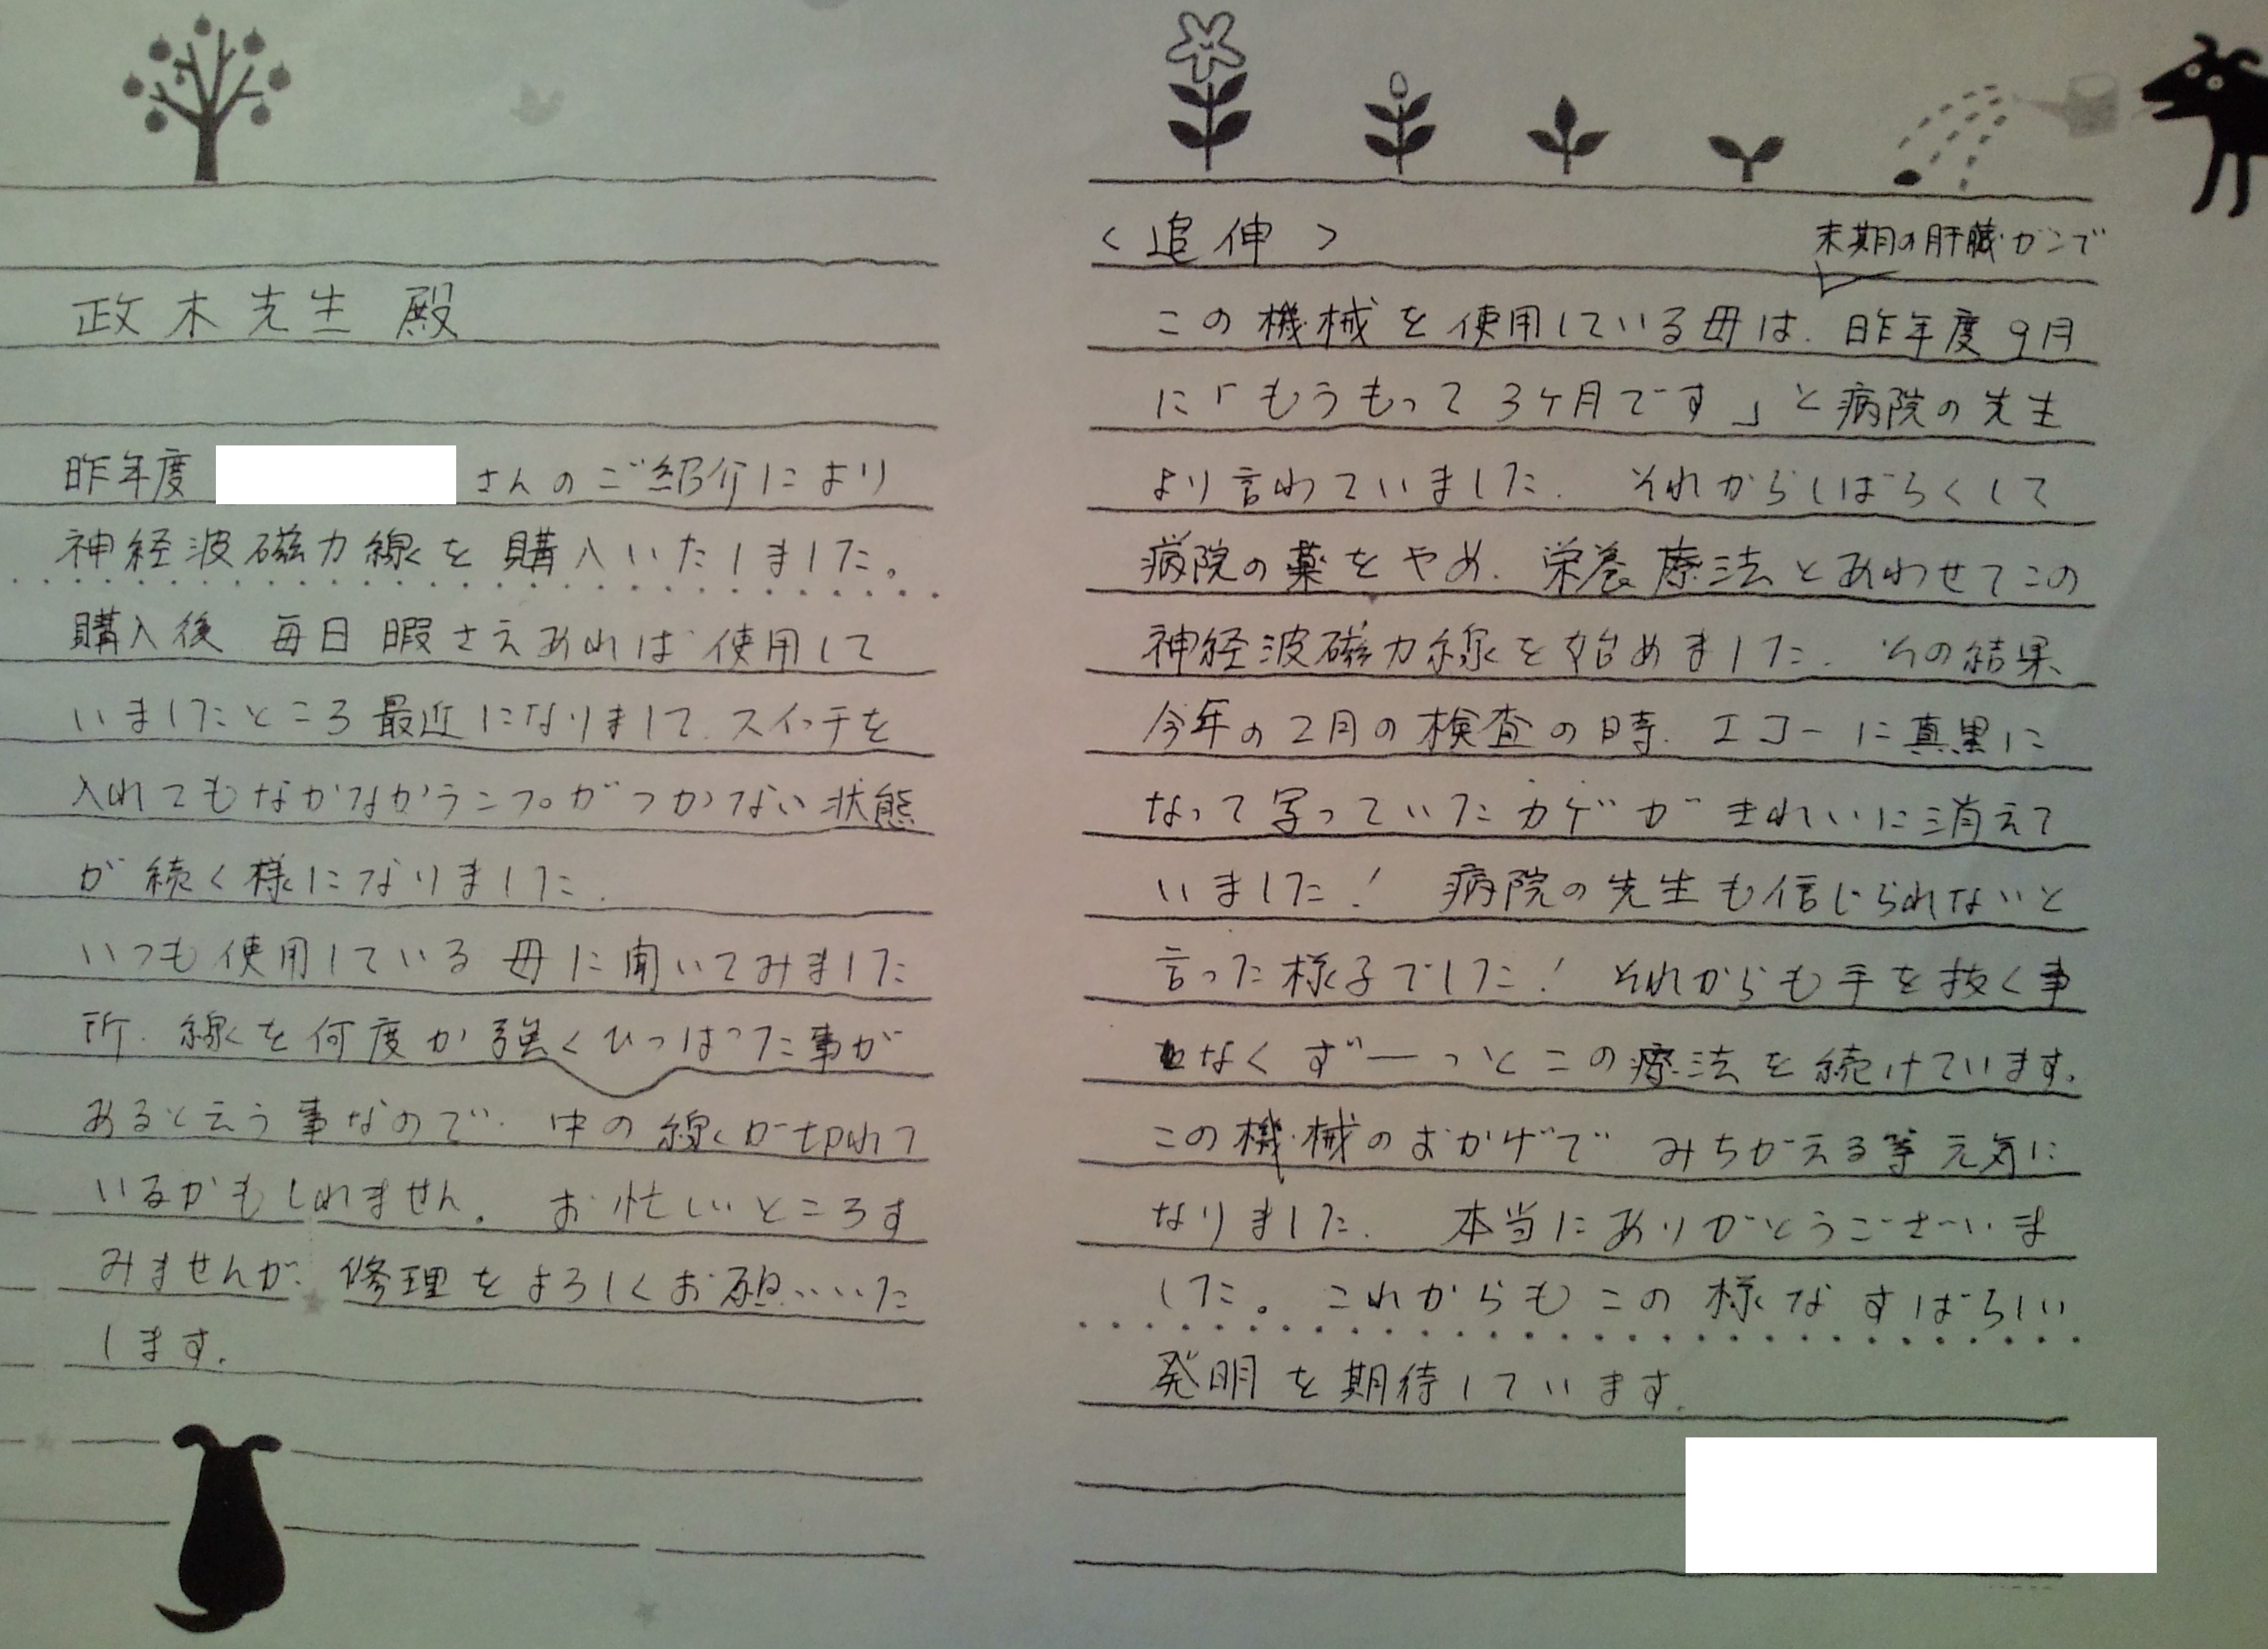 政木先生 殿
昨年度
さんのご紹介により
神経波磁力線を購入いたしました。
購入後 毎日暇さえあれば使用して
いましたところ最近になりまして、スイッチを
入れてもなかなかランプがつかない状態
が続く様になりました。
いつも使用している母に聞いてみました
所、線を何度か強くひっぱった事が
あると云う事なので、中の線が切れて
いるかもしれません。 お忙しいところす
みませんが、修理をよろしくお願いいた
します。
<追伸>
末期の肝臓ガンで
この機械を使用している母は、昨年度9月
に「もうもって3ヶ月です」と病院の先生
より言われていました。 それからしばらくして
病院の薬をやめ、栄養療法とあわせてこの
神経波磁力線を始めました。その結果、
今年の2月の検査の時、エコーに真黒に
なって写っていたカゲがきれいに消えて
いました! 病院の先生も信じられないと
言った様子でした! それからも手を抜く事
もなくずーっとこの療法を続けています。
この機械のおかげで みちがえる等元気に
なりました。 本当にありがとうございま
した。 これからもこの様なすばらしい
発明を期待しています。